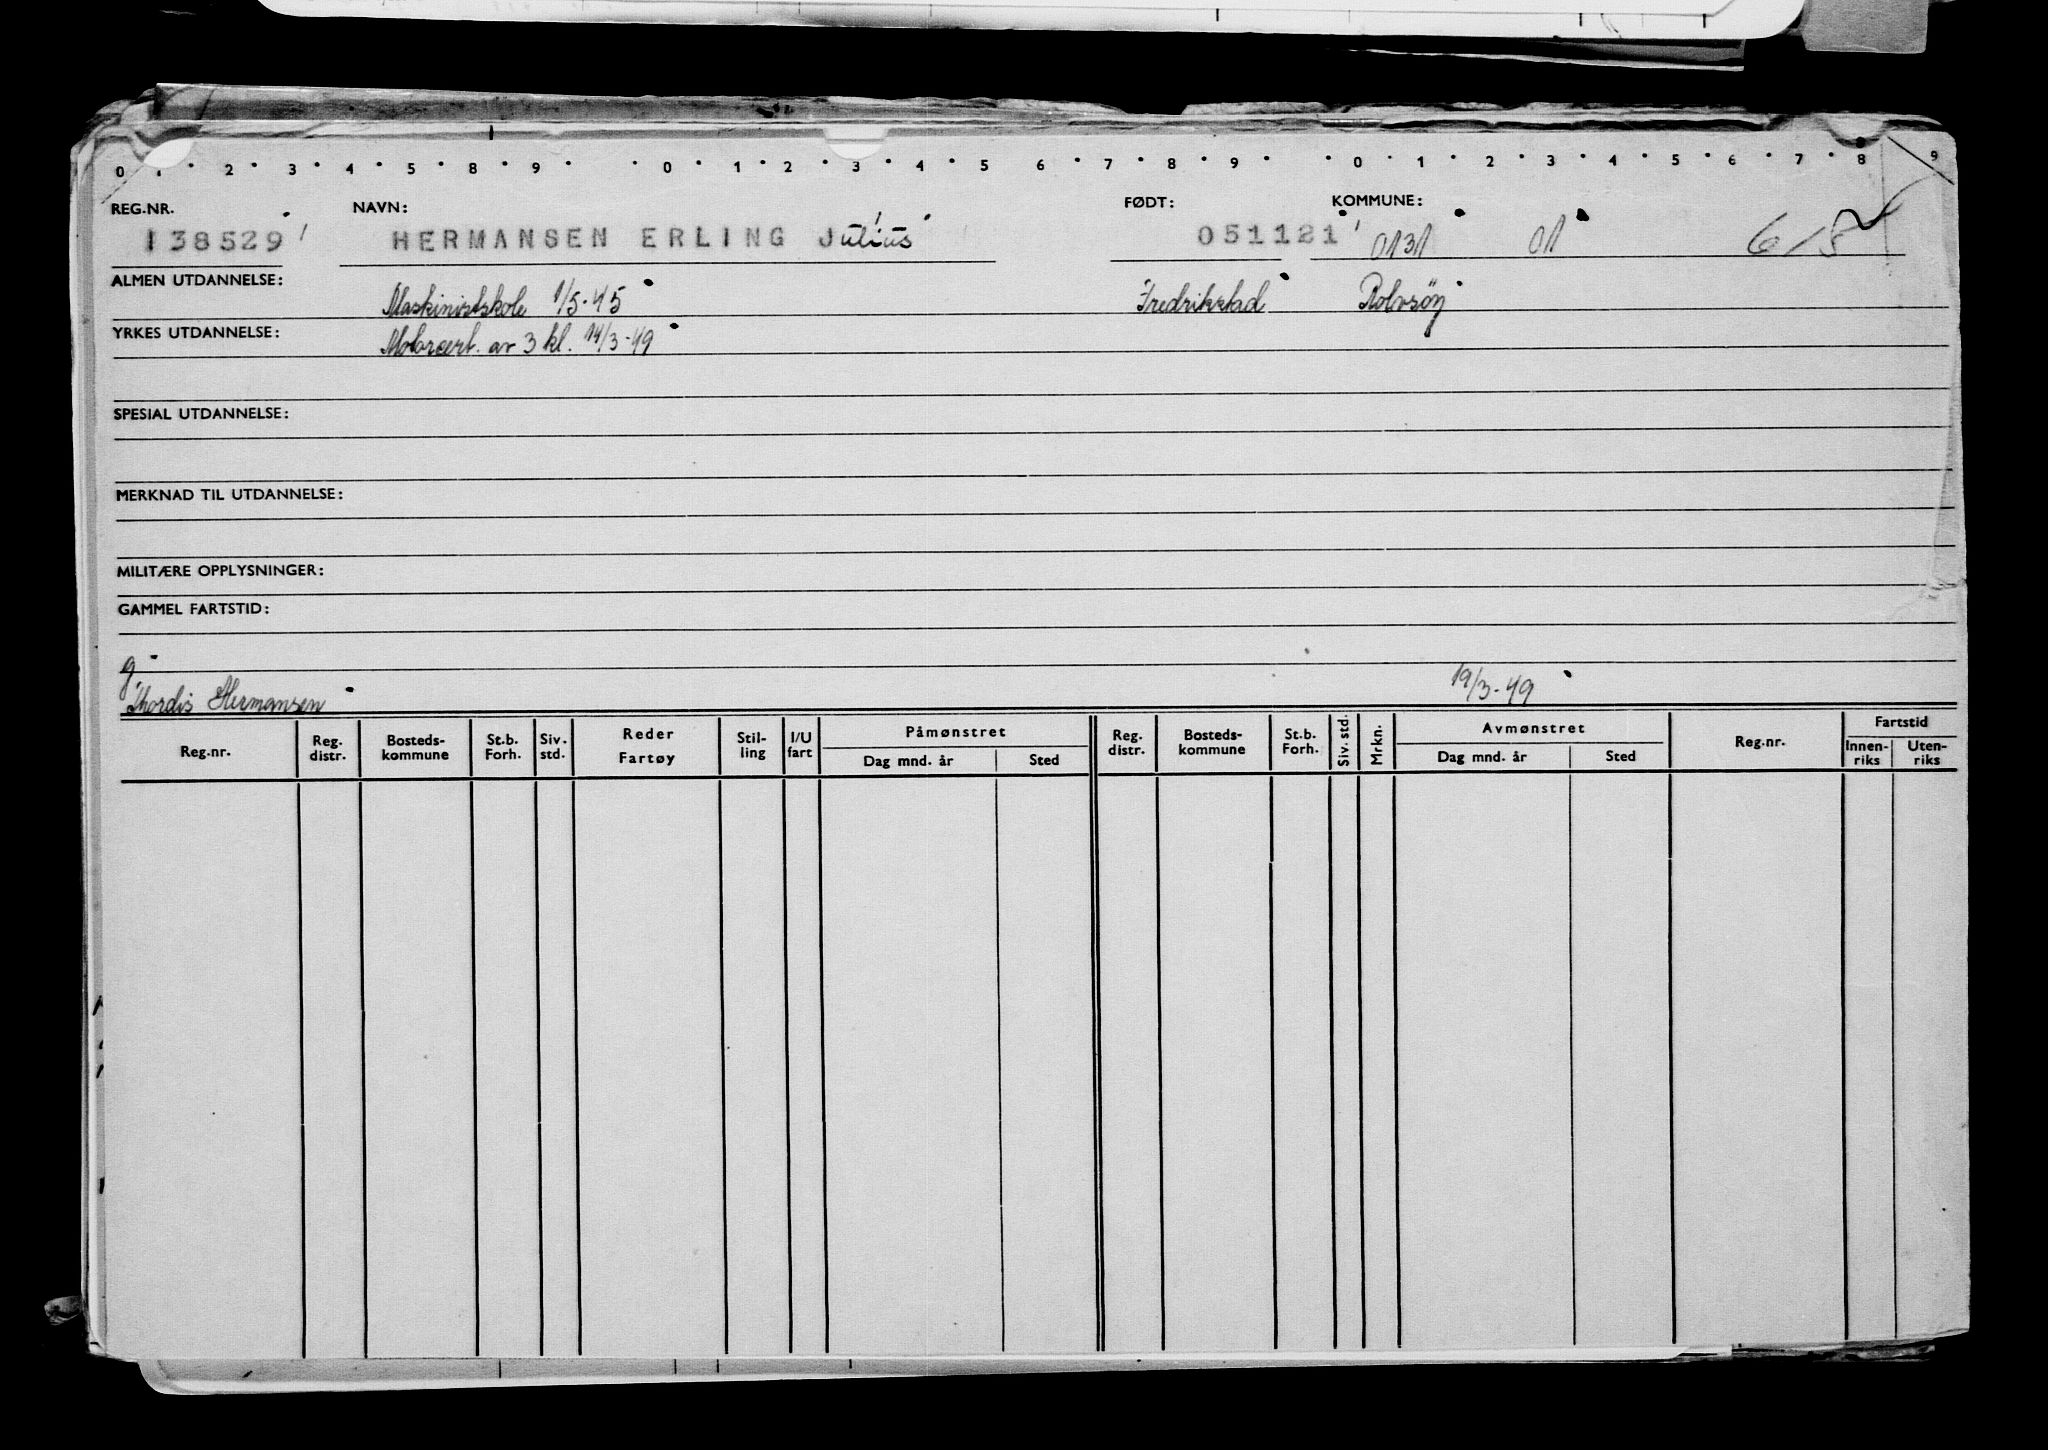 0 1 2 3 4 5 8 9 0 1 2 3 4 5 6 7 8 9 0 1 2 3 4 5 6 7 8 9
REG.NR. NAVN: FØDT: KOMMUNE:
138529 HERMANSEN ERLING Julius 051121 0131 01 6/8
ALMEN UTDANNELSE: Maskinistskole 1/5-45 Fredrikstad Rolvsøy
YRKES UTDANNELSE: Motorcert. av 3 kl. 14/3-49
SPESIAL UTDANNELSE:
MERKNAD TIL UTDANNELSE:
MILITÆRE OPPLYSNINGER:
GAMMEL FARTSTID:
g
Thordis Hermansen 19/3-49
Reg.nr. Reg. distr. Bosteds-kommune St.b. Forh. Siv. std. Reder Fartøy Stil-ling I/U fart Påmønstret Dag mnd. år Sted Reg. distr. Bosteds-kommune St.b. Forh. Siv. std. Mrkn. Avmønstret Dag mnd. år Sted Reg.nr. Fartstid Innen-riks Uten-riks